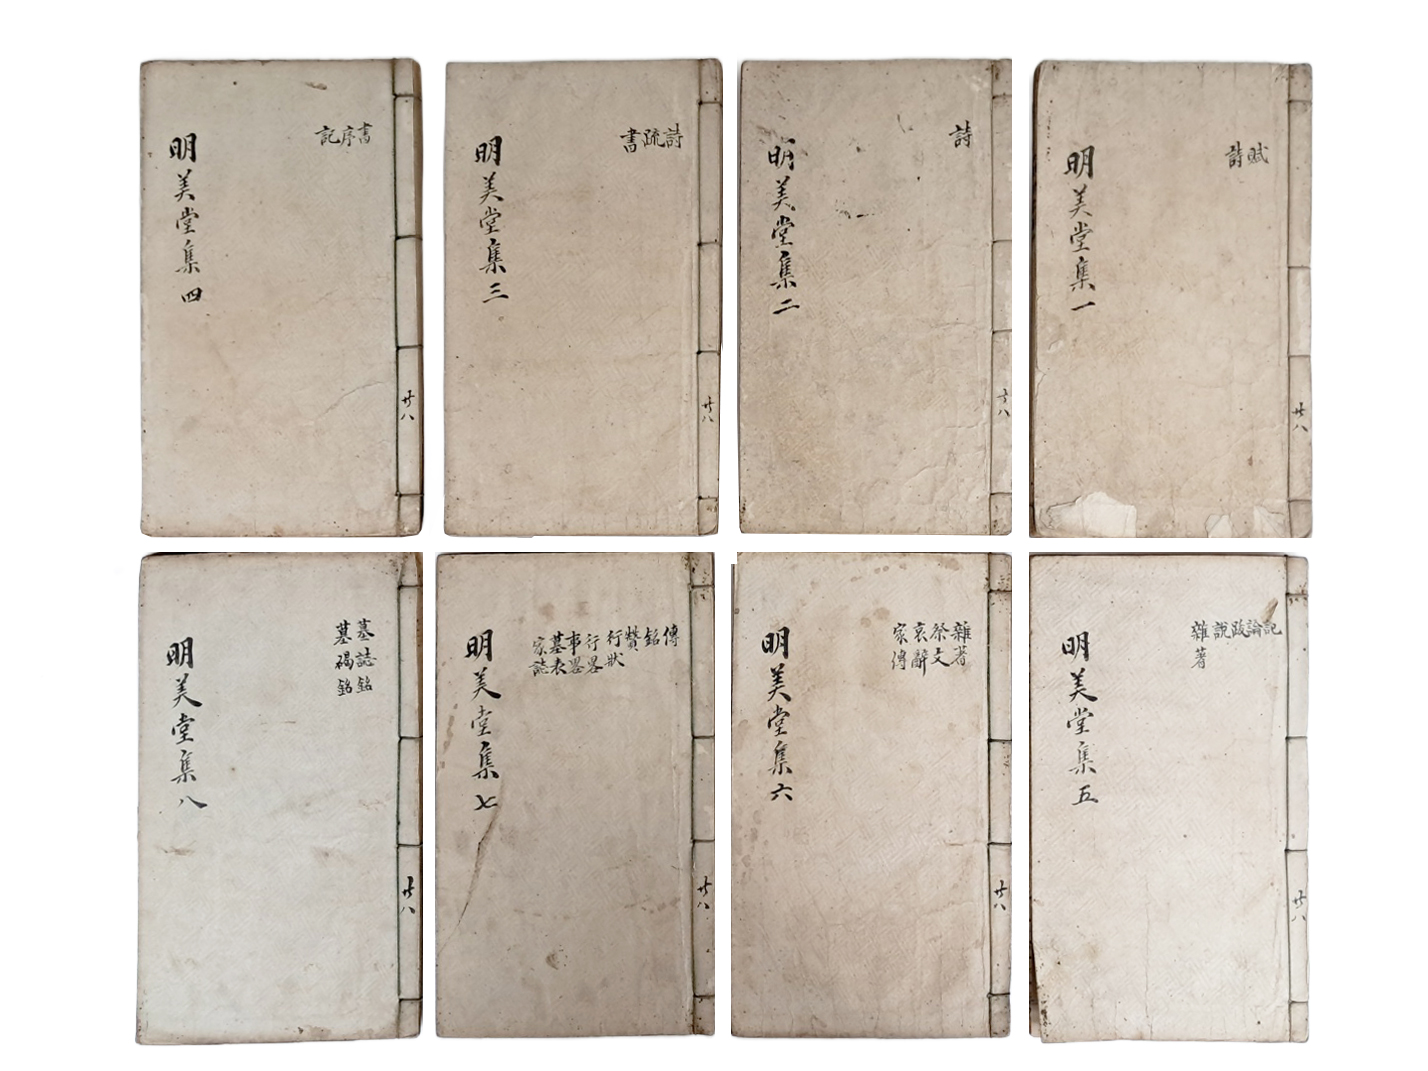 賦
詩
明美堂集一
共八
詩
明美堂集二
共八
詩
疏
書
明美堂集三
共八
書
序
記
明美堂集四
共八
記
論
跋
說
雜著
明美堂集五
共八
雜著
祭文
哀辭
家傳
明美堂集六
共八
傳
銘
贊
行狀
行畧
事畧
墓表
家誌
明美堂集七
共八
墓誌銘
墓碣銘
明美堂集八
共八